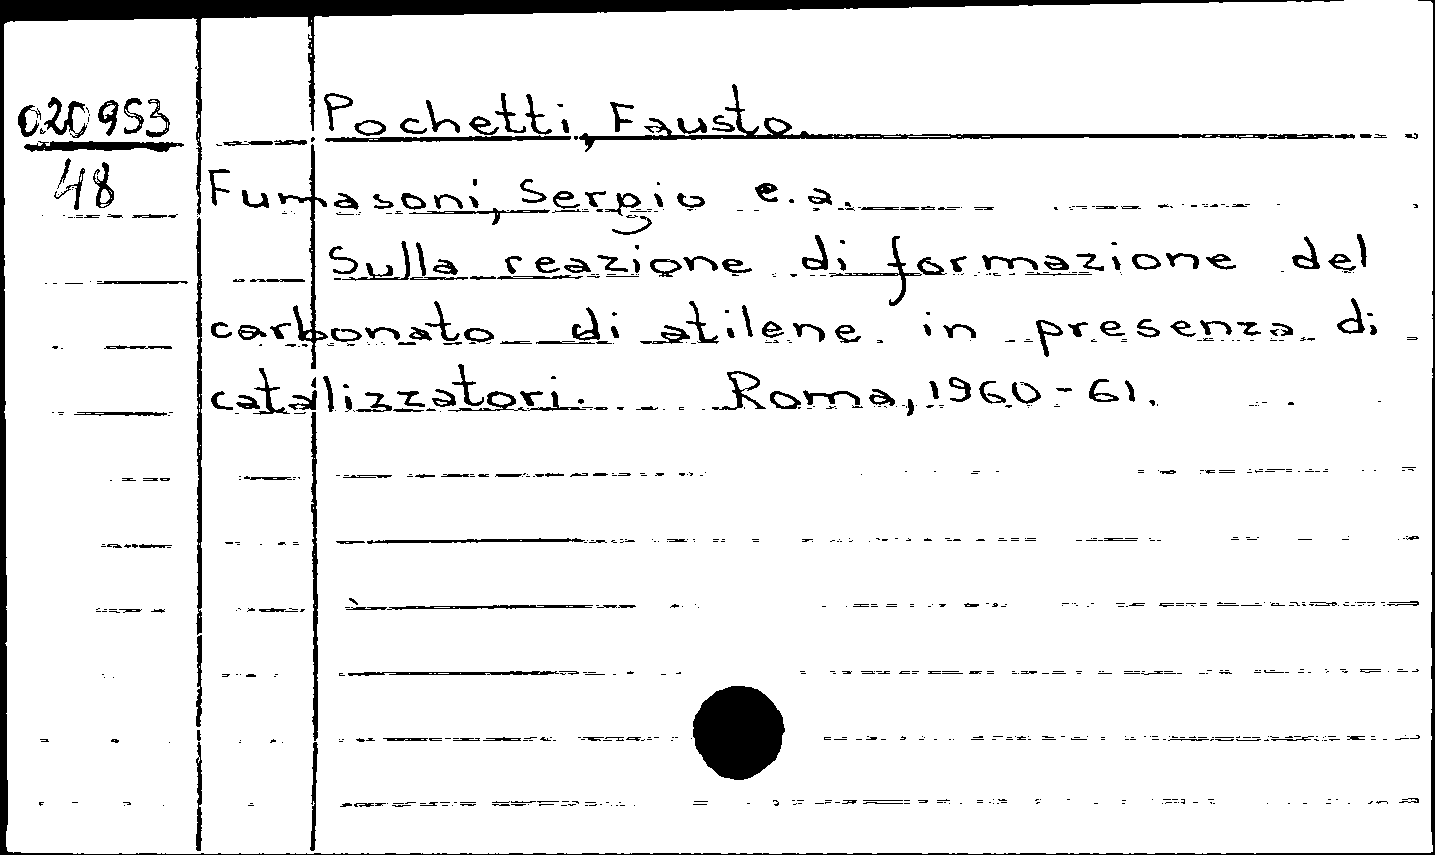 020953 Pochetti, Fausto.
48 Fumasoni, Sergio e.a.
Sulla reazione di formazione del
carbonato di atilene in presenza di
catalizzatori. Roma, 1960-61.